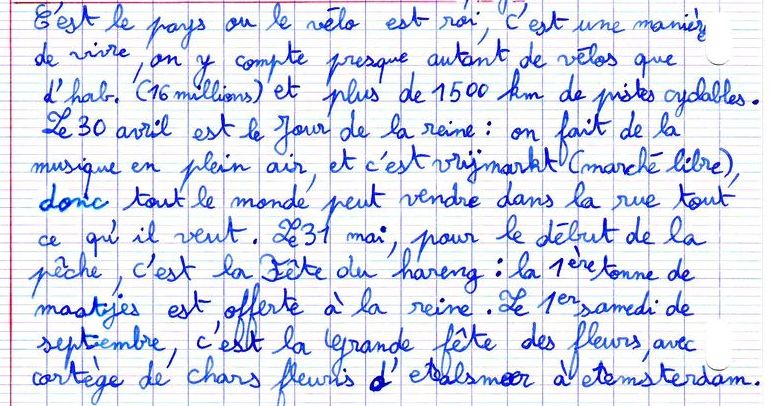 C'est le pays ou le vélo est roi, c'est une manière
de vivre, on y compte presque autant de vélos que
d'hab. (16 millions) et plus de 1500 km de pistes cyclables.
Le 30 avril est le Jour de la reine : on fait de la
musique en plein air, et c'est vrijmarkt (marché libre),
donc tout le monde peut vendre dans la rue tout
ce qu'il veut. Le 31 mai, pour le début de la
pêche, c'est la Fête du hareng : la 1ère tonne de
maatjes est offerte à la reine. Le 1er samedi de
septembre, c'est la Grande fête des fleurs, avec
cortège de chars fleuris d'Aalsmeer à Amsterdam.